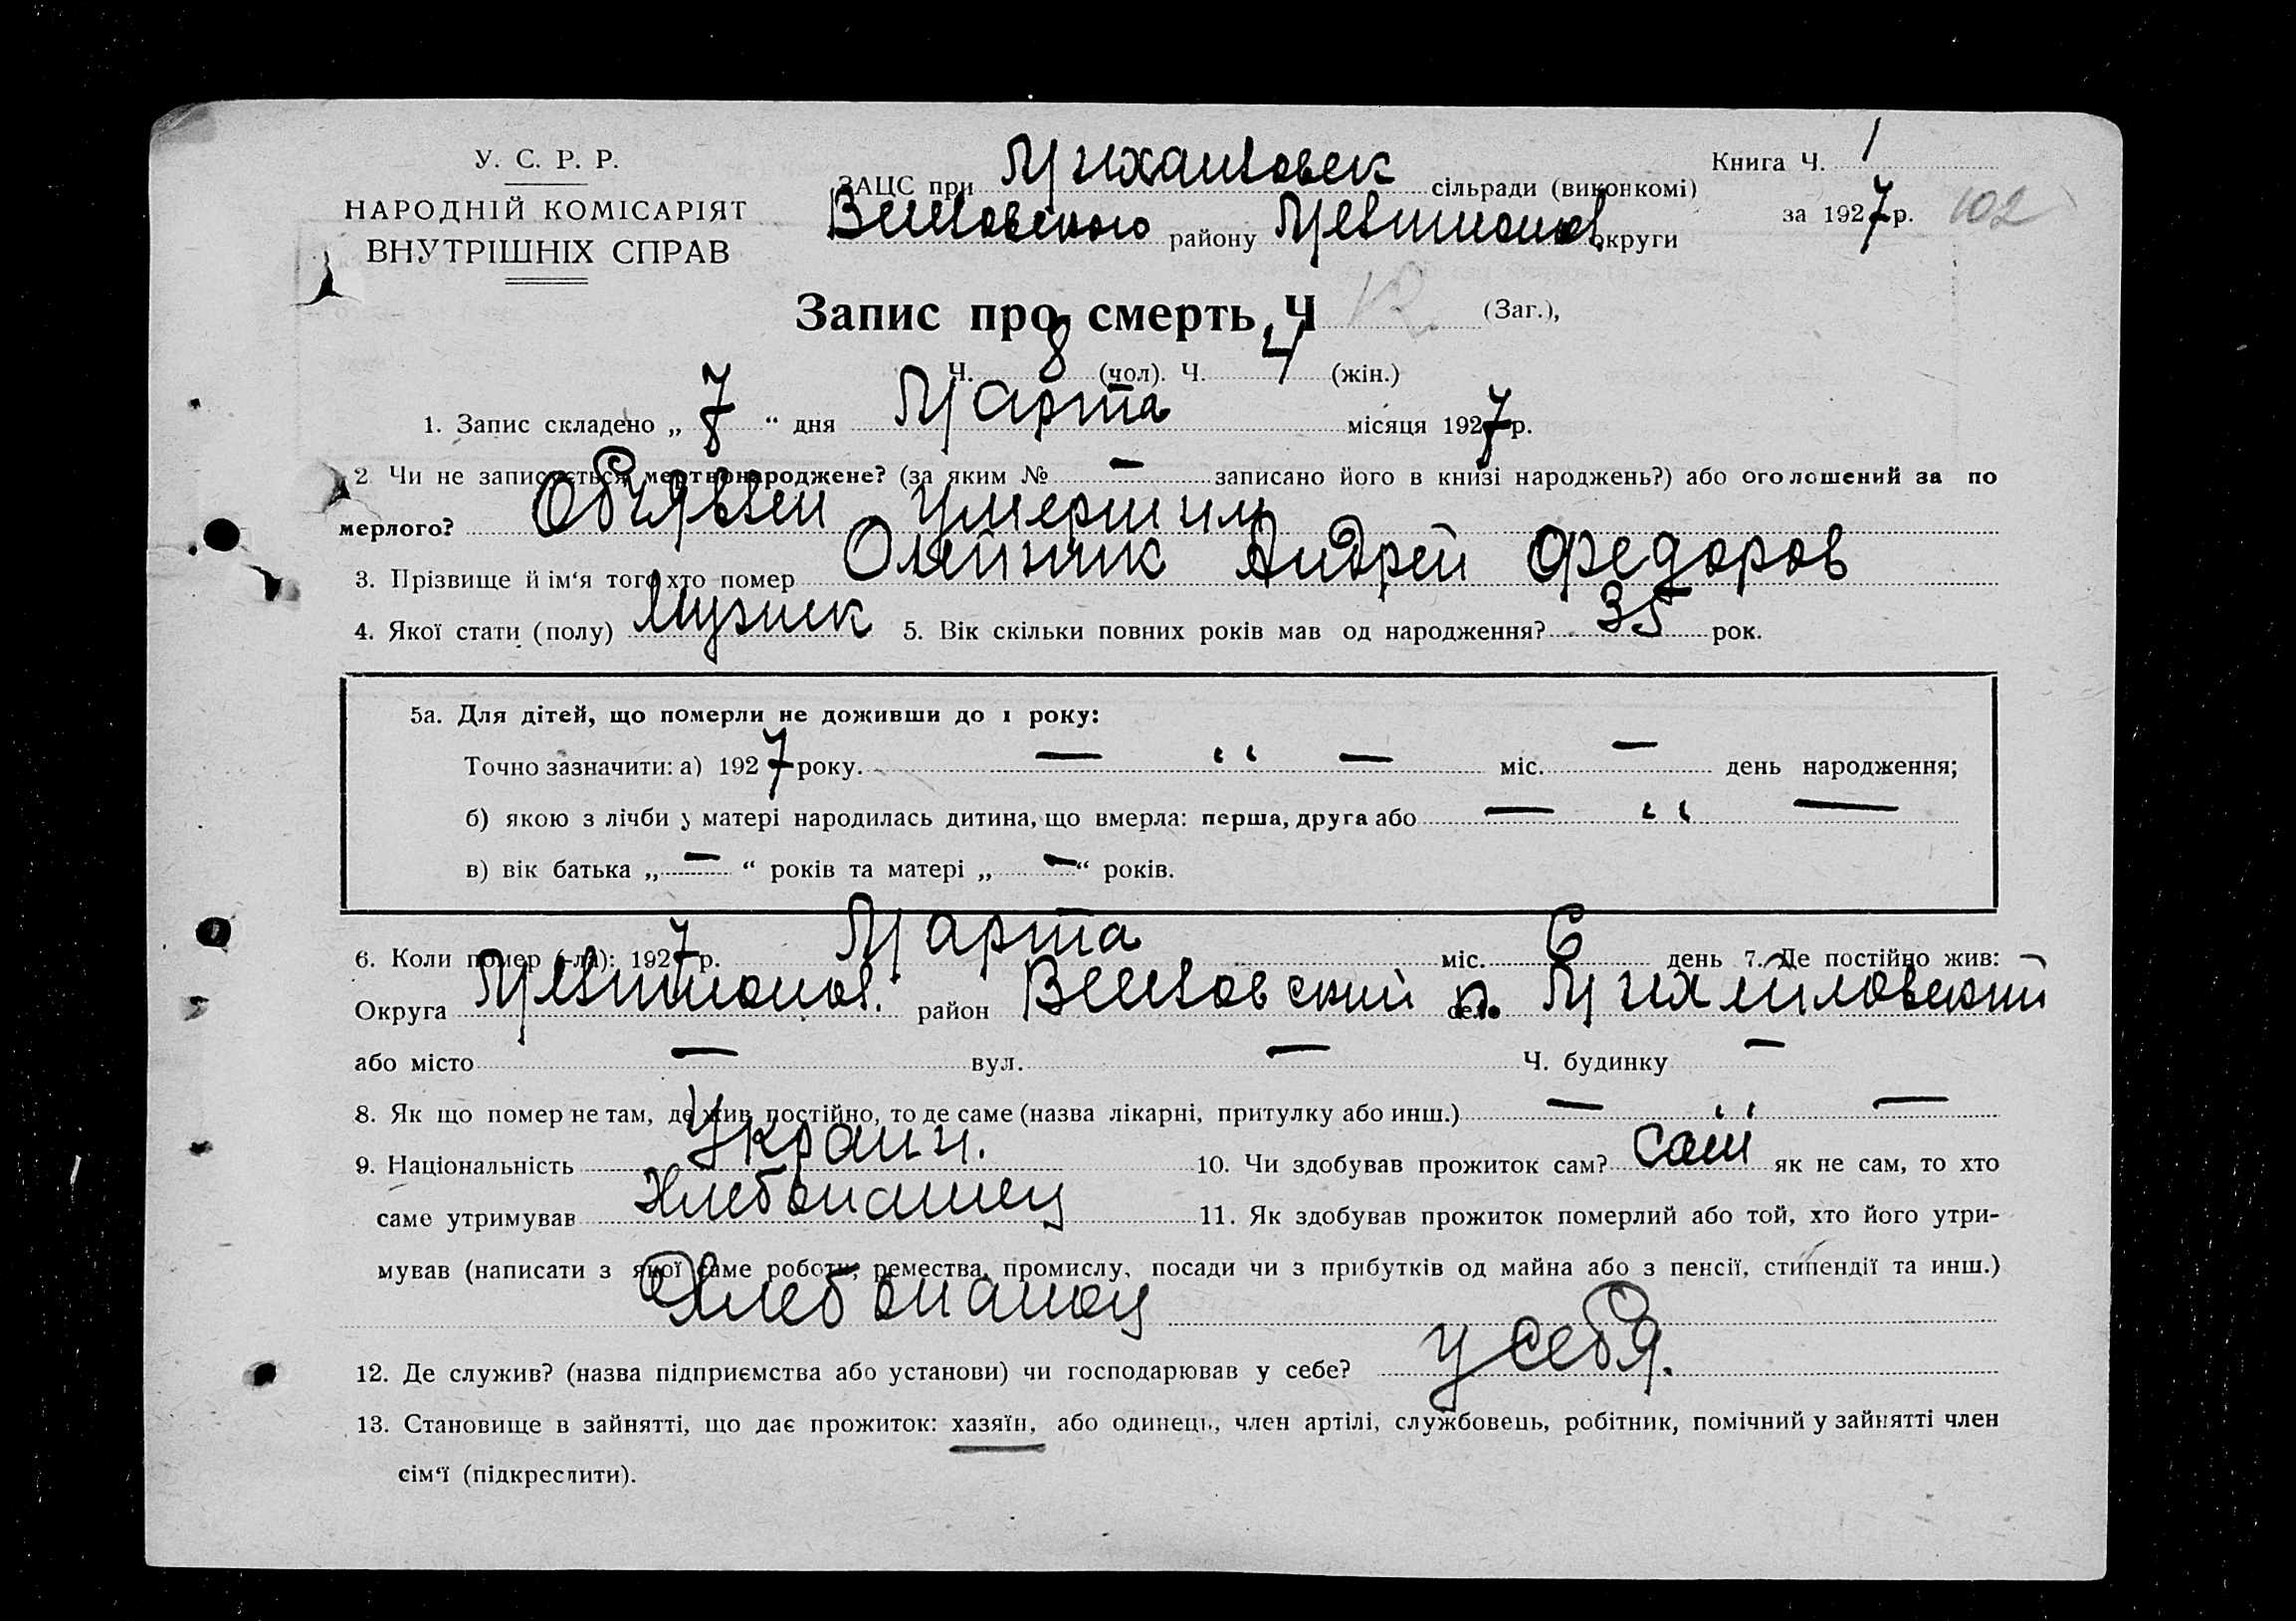 У. С. Р. Р.
НАРОДНІЙ КОМІСАРІЯТ
ВНУТРІШНІХ СПРАВ
ЗАЦС при Михайловск сільради (виконкомі)
району округи
Книга Ч. 1
за 1927 р. 102
Запис про смерть, Ч 12 (Заг.),
Ч. 8 (чол). Ч. 4 (жін.)
1. Запис складено „ 7 “ дня Марта місяця 1927 р.
2 Чи не записується мертвонароджене? (за яким № — записано його в книзі народжень?) або оголошений за по
мерлого? Обчявлен умершим
3. Прізвище й ім‘я того хто помер Олейник Андрей Федоров
4. Якої стати (полу) Музшик 5. Вік скільки повних років мав од народження? 35 рок.
5а. Для дітей, що померли не доживши до 1 року:
Точно зазначити: а) 1927 року. — “ — міс. — день народження;
б) якою з лічби у матері народилась дитина, що вмерла: перша, друга або — “ —
в) вік батька „ — “ років та матері „ — “ років.
6. Коли помер (-ла): 1927 р. Марта міс. 6 день 7. Де постійно жив: —
Округа район село Михайловский
або місто — вул. — Ч. будинку —
8. Як що помер не там, де жив постійно, то де саме (назва лікарні, притулку або инш.) — “ —
9. Національність Украин. 10. Чи здобував прожиток сам? Сам як не сам, то хто
саме утримував Хлебопашец 11. Як здобував прожиток померлий або той, хто його утри-
мував (написати з якої саме роботи, ремества, промислу, посади чи з прибутків од майна або з пенсії, стипендії та инш.)
Хлебопашец
12. Де служив? (назва підприємства або установи) чи господарював у себе? у себя.
13. Становище в зайнятті, що дає прожиток: хазяїн, або одинець, член артілі, службовець, робітник, помічний у зайнятті член
сім‘ї (підкреслити).